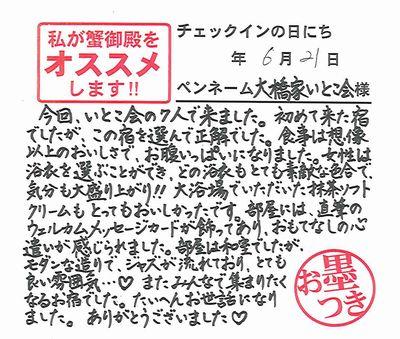 私が蟹御殿を
オススメ
します!!
チェックインの日にち
年 6月21日
ペンネーム大橋家いとこ会様
今回、いとこ会の7人で来ました。初めて来た宿
でしたが、この宿を選んで正解でした。食事は想像
以上のおいしさで、お腹いっぱいになりました。女性は
浴衣を選ぶことができ、どの浴衣もとても素敵な色合で、
気分も大盛り上がり!!大浴場でいただいた抹茶ソフト
クリームもとってもおいしかったです。部屋には、直筆の
ウェルカムメッセージカードが飾ってあり、おもてなしの心
遣いが感じられました。部屋は和室でしたが、
モダンな造りで、ジャズが流れており、とても
良い雰囲気…♡またみんなで集まりたく
なるお宿でした。たいへんお世話になり
ました。ありがとうございました♡
お墨つき